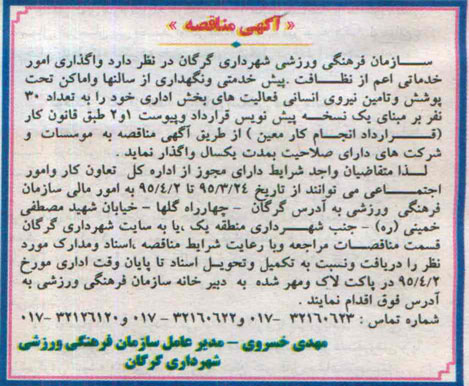 « آگهی مناقصه »
سازمان فرهنگی ورزشی شهرداری گرگان در نظر دارد واگذاری امور
خدماتی اعم از نظافت .پیش خدمتی ونگهداری از سالنها واماکن تحت
پوشش وتامین نیروی انسانی فعالیت های بخش اداری خود را به تعداد ۳۰
نفر بر مبنای یک نسخه پیش نویس قرارداد وپیوست ۱و۲ طبق قانون کار
(قرارداد انجام کار معین ) از طریق آگهی مناقصه به موسسات و
شرکت های دارای صلاحیت بمدت یکسال واگذار نماید .
لـذا متقاضیان واجد شرایط دارای مجوز از اداره کل تعاون کار وامور
اجتماعی می توانند از تاریخ ۹۵/۳/۲۴ تا ۹۵/۴/۲ به امور مالی سازمان
فرهنگی ورزشی به آدرس گرگان - چهارراه گلها - خیابان شهید مصطفی
خمینی (ره) - جنب شهرداری منطقه یک ،یا به سایت شهرداری گرگان
قسمت مناقصات مراجعه وبا رعایت شرایط مناقصه ،اسناد ومدارک مورد
نظر را دریافت ونسبت به تکمیل وتحویل اسناد تا پایان وقت اداری مورخ
۹۵/۴/۲ در پاکت لاک ومهر شده به دبیر خانه سازمان فرهنگی ورزشی به
آدرس فوق اقدام نمایند .
شماره تماس : ۳۲۱۶۰۶۲۳ -۰۱۷ و۳۲۱۶۰۶۲۲ - ۰۱۷ و۳۲۱۲۶۱۲۰ -۰۱۷
مهدی خسروی - مدیر عامل سازمان فرهنگی ورزشی
شهرداری گرگان